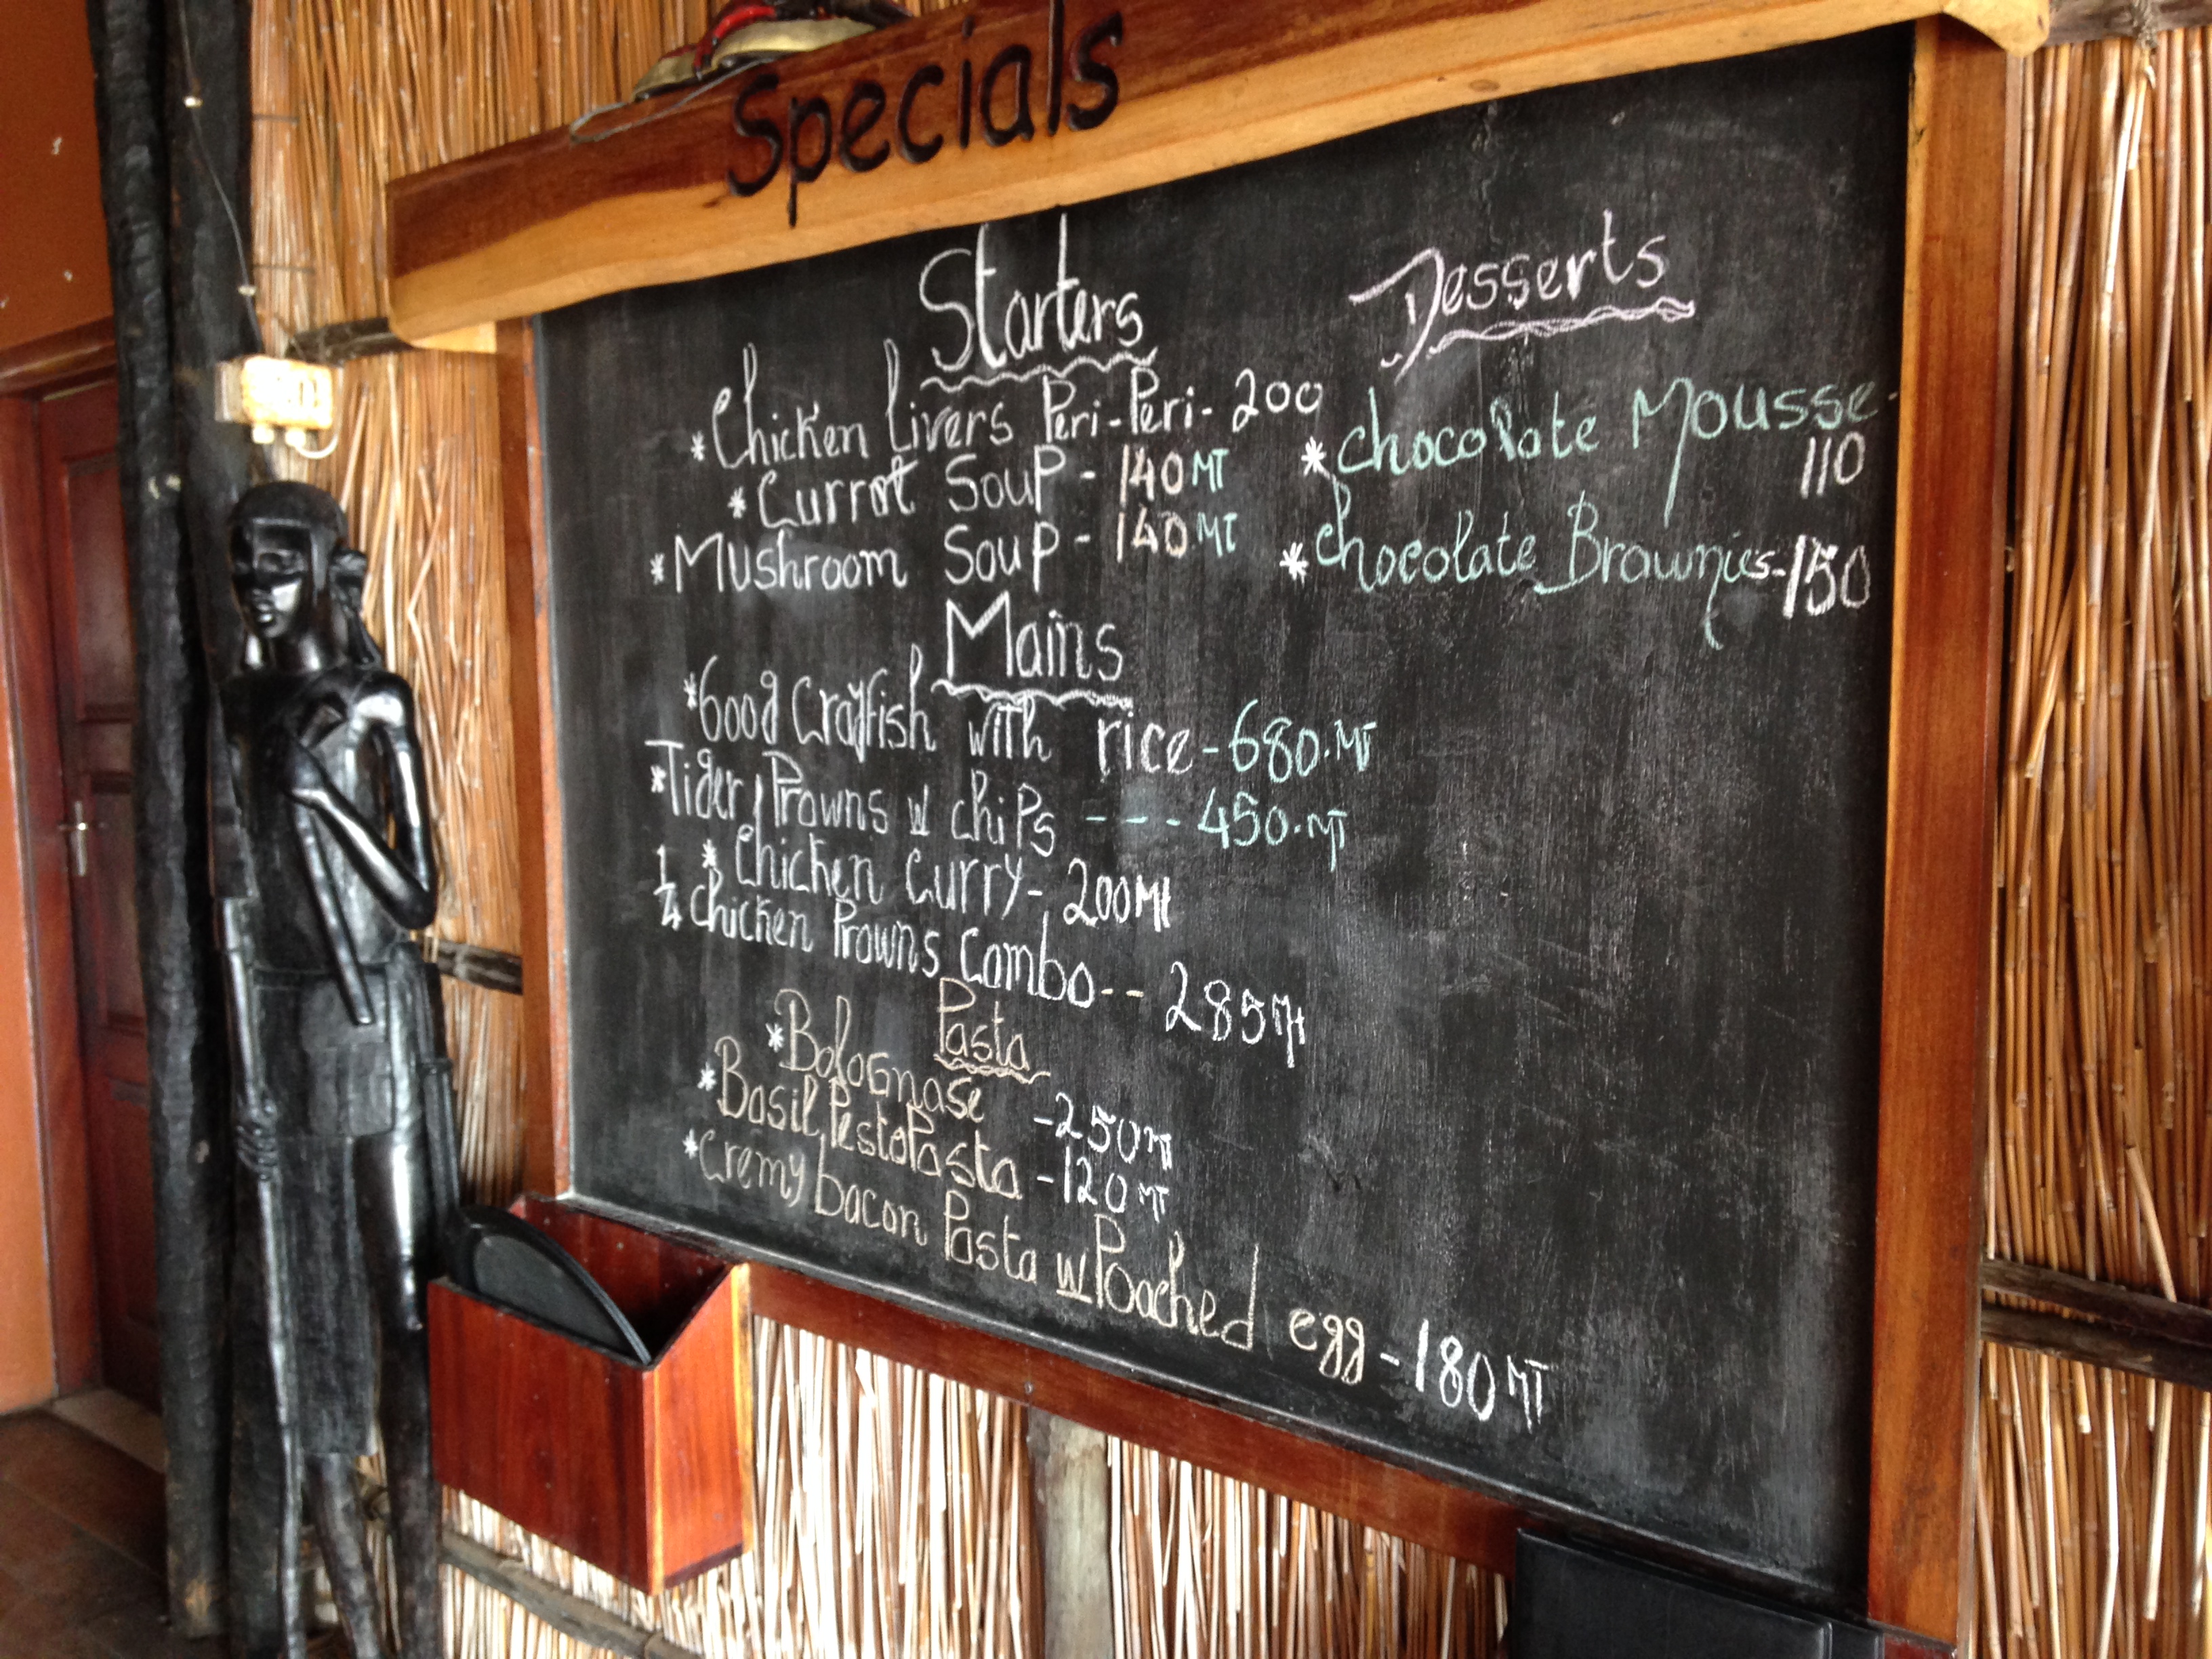 Specials
Starters
*Chicken livers Peri-Peri- 200
*Currot Soup - 140 MT
*Mushroom Soup - 140 MT
Mains
*600g Crayfish with rice - 680.MT
*Tiger Prawns w chips - - - 450.MT
*Chicken Curry- 200Mt
1/4 chicken Prawns Combo-- 285Mt
Pasta
*Bolognase -250 MT
*Basil PestoPasta -120 MT
*Cremy bacon Pasta w Poached egg - 180 MT
Desserts
*chocolate Mousse-
110
*chocolate Brownies-150